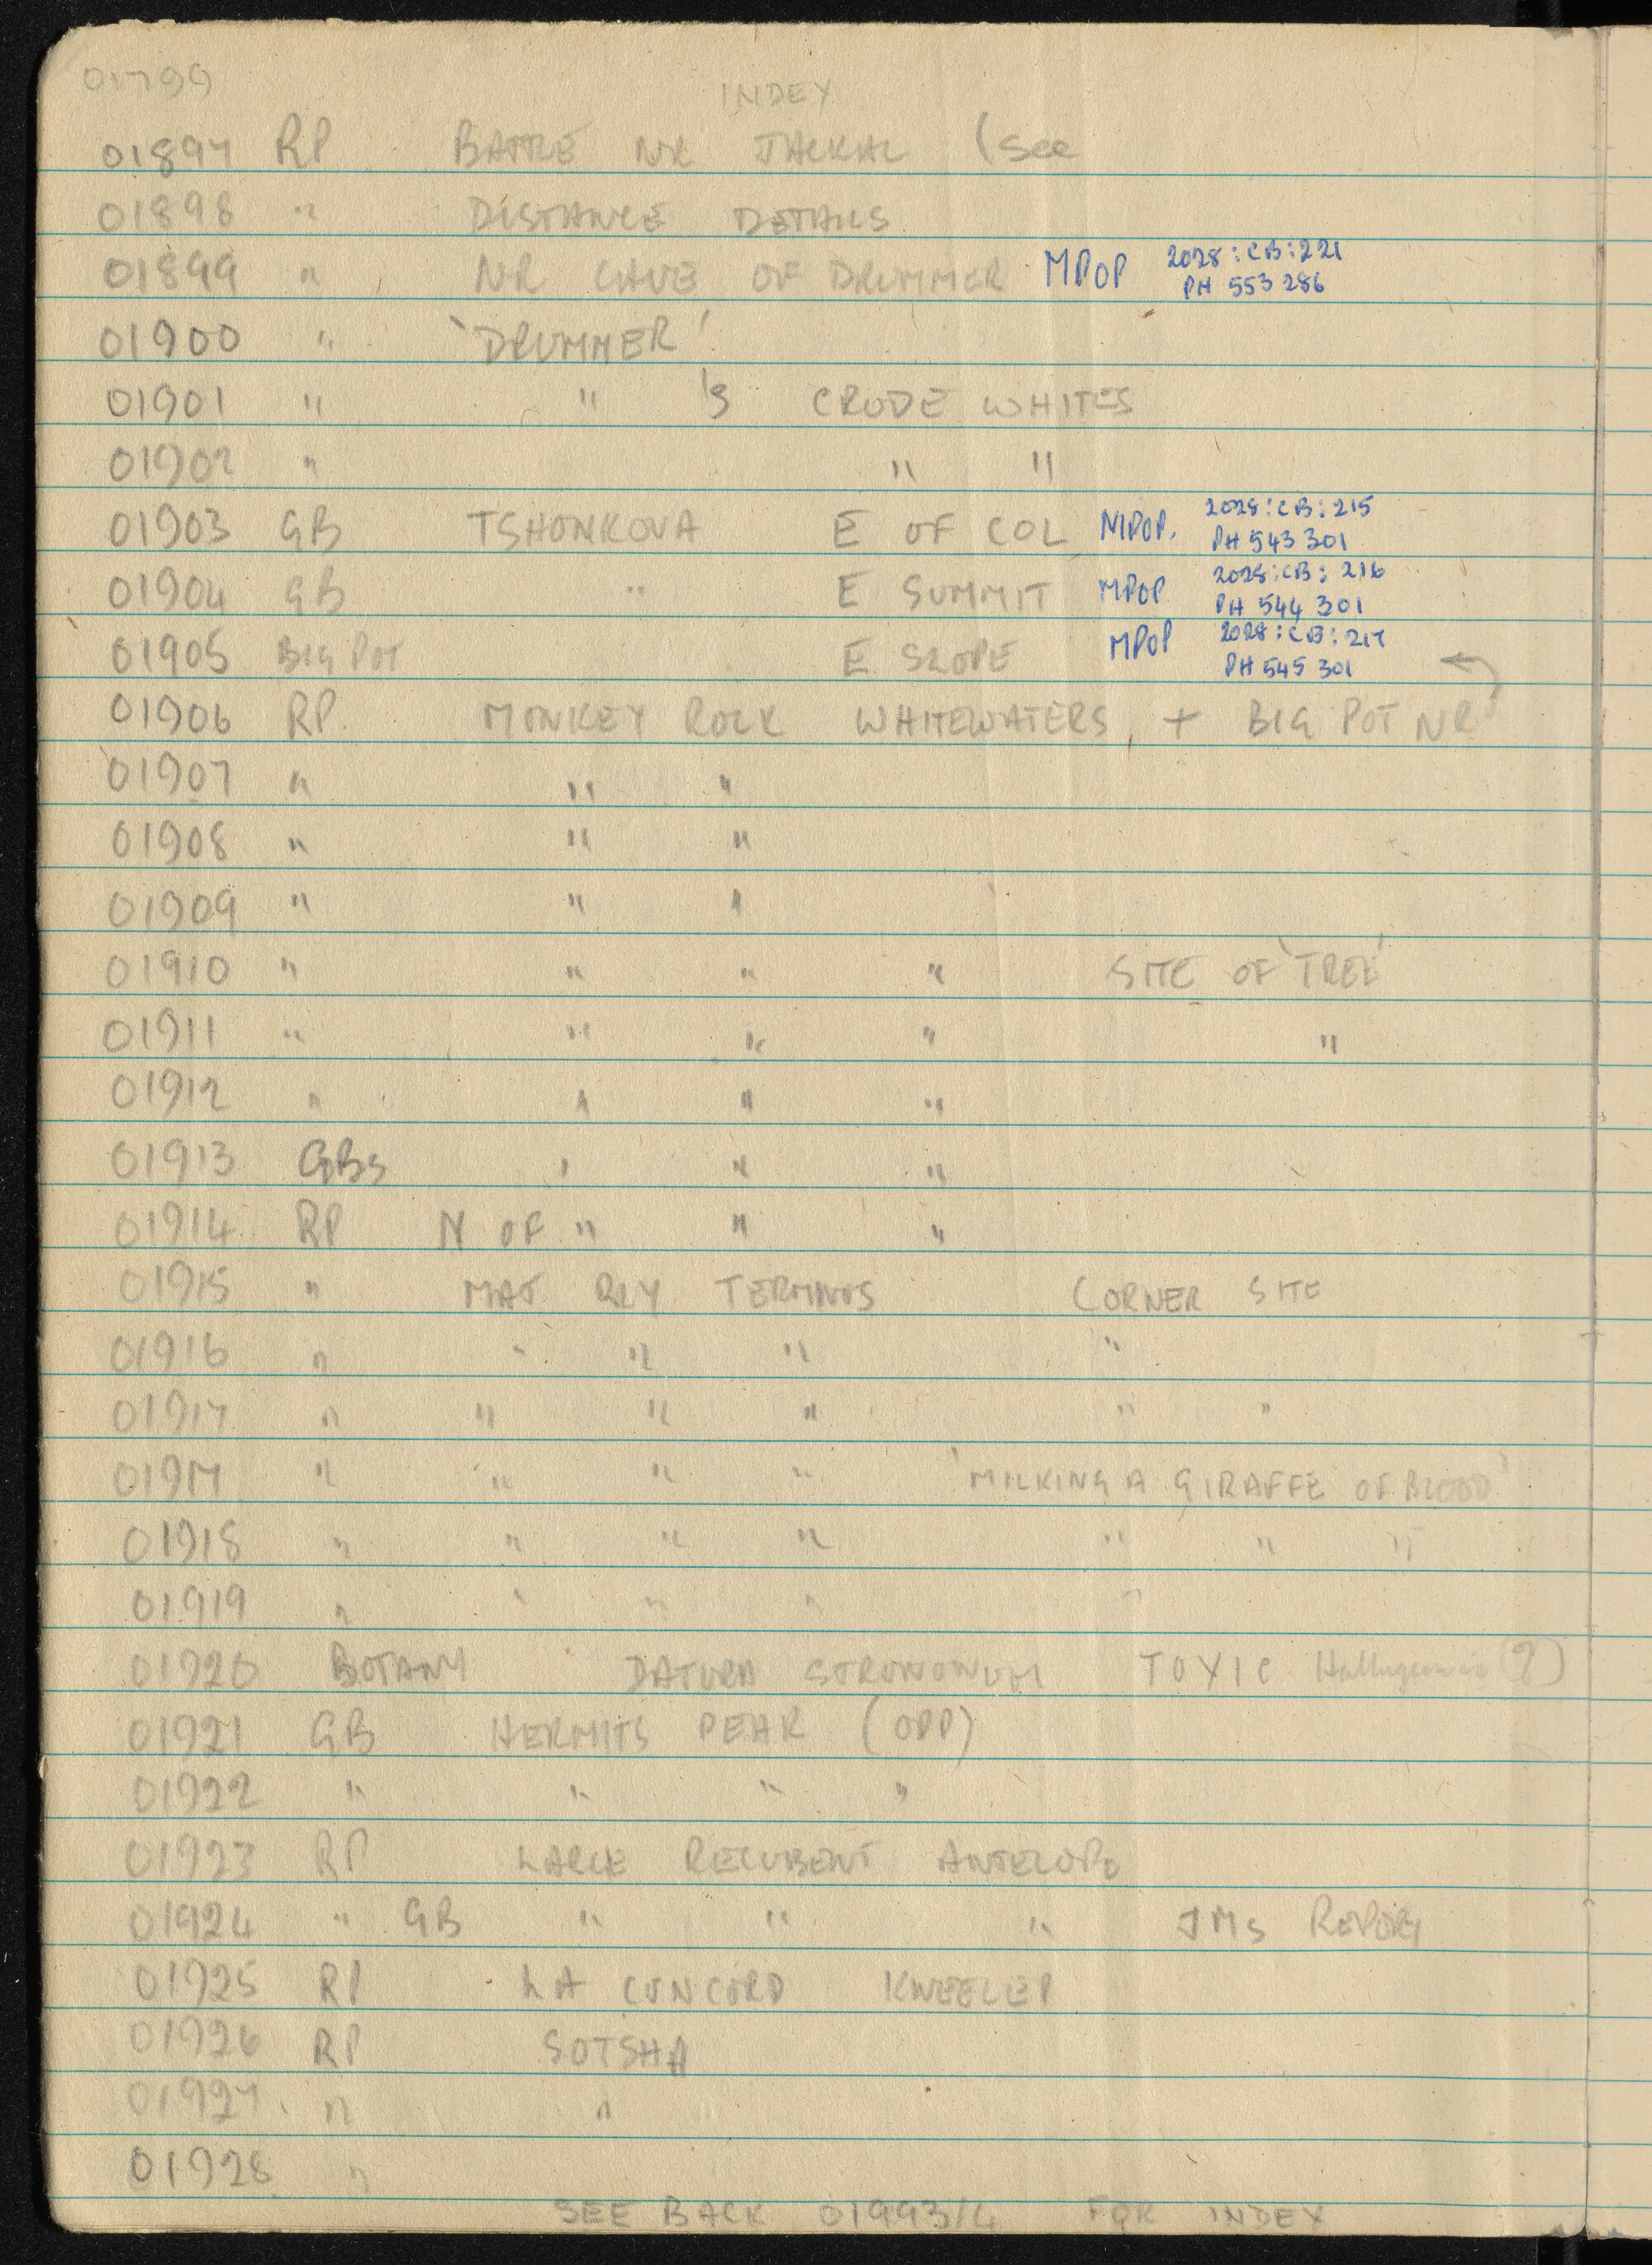 01799
INDEX
01897 RP BATTLE NR JACKAL (See
01898 " DISTANCE DETAILS
01899 " NR CAVE OF DRUMMER MPOP 2028:CB:221
PH 553 286
01900 " 'DRUMMER'
01901 " " 's CRUDE WHITES
01902 " " "
01903 GB TSHONKOVA E OF COL MPOP. 2028:CB:215
PH 543 301
01904 GB " E SUMMIT MPOP 2028:CB:216
PH 544 301
01905 BIG POT E SLOPE MPOP 2028:CB:217
PH 545 301
01906 RP MONKEY ROCK WHITEWATERS, + BIG POT NR
01907 " " "
01908 " " "
01909 " " "
01910 " " " " SITE OF 'TREE'
01911 " " " " "
01912 " " " "
01913 GBs " " "
01914 RP N OF " " "
01915 " MAT RLY TERMINUS CORNER SITE
01916 " " " " "
01917 " " " " " "
01917 " " " " 'MILKING A GIRAFFE OF BLOOD'
01918 " " " " " " "
01919 " " " " "
01920 BOTANY DATURA TOXIC (?)
01921 GB HERMITS PEAK (OPP)
01922 " " " "
01923 RP LARGE RECUBENT ANTELOPE
01924 " GB " " " JMs REPORT
01925 RP LA CONCORD KNEELER
01926 RP SOTSHA
01927. " "
01928 "
SEE BACK 01993/4 FOR INDEX